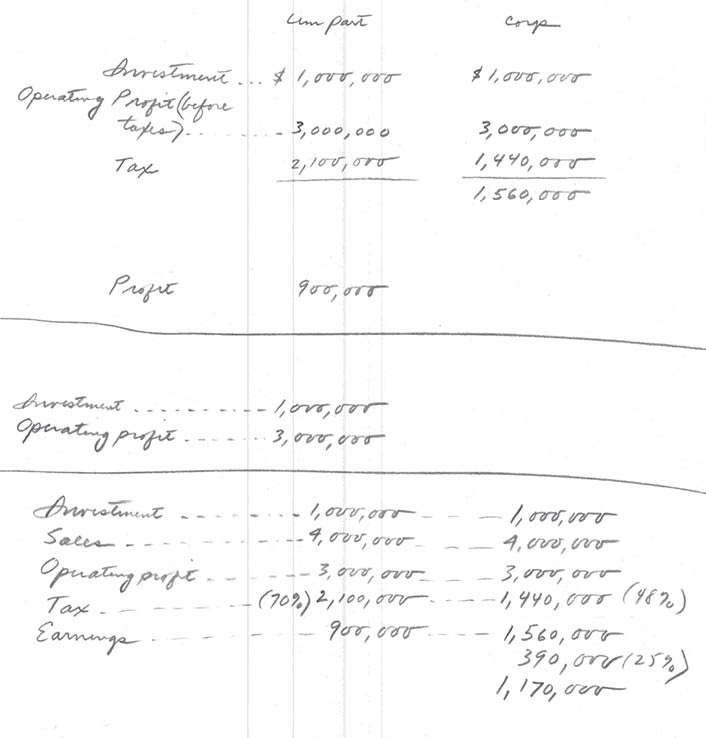 Lim Part Corp
Investment ... $ 1,000,000 $ 1,000,000
Operating Profit (before
taxes) ..... 3,000,000 3,000,000
Tax 2,100,000 1,440,000
1,560,000
Profit 900,000
Investment ....... 1,000,000
Operating profit ..... 3,000,000
Investment ---- 1,000,000 -- 1,000,000
Sales ------ 4,000,000 -- 4,000,000
Operating profit ---- 3,000,000 -- 3,000,000
Tax ------ (70%) 2,100,000 ---- 1,440,000 (48%)
Earnings ------ 900,000 --- 1,560,000
390,000 (25%)
1,170,000